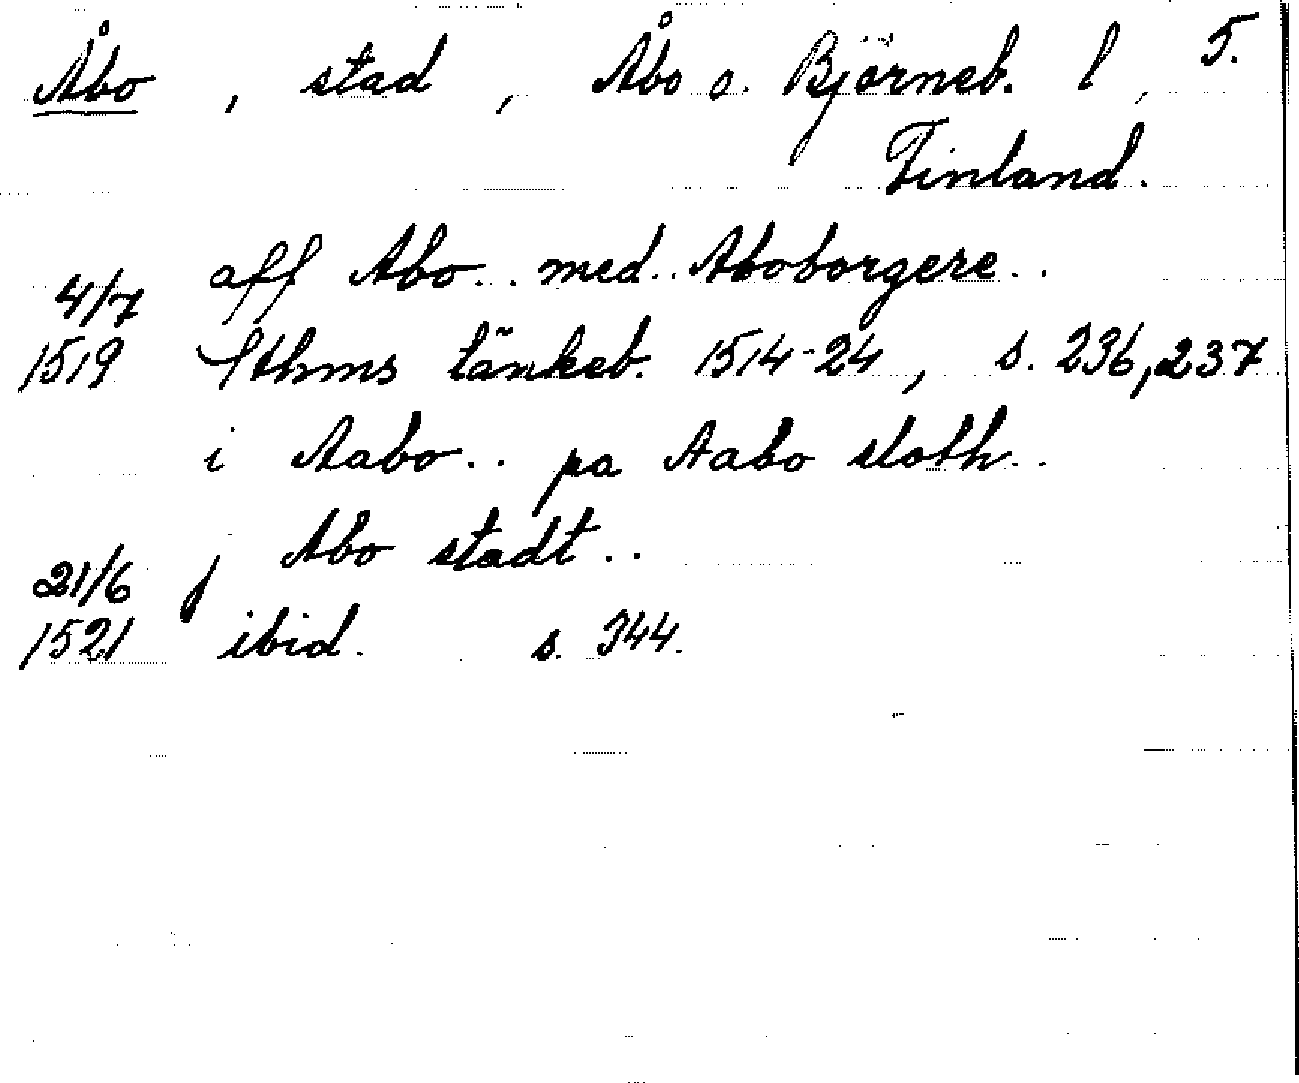 Åbo, stad, Åbo o. Björneb. l, 5.
Finland.
4/7 aff Abo.. med.. Aboborgere..
1519 Sthms tänkeb. 1514-24, s. 236, 237
i Aabo.. pa Aabo sloth..
21/6 j Abo stadt..
1521 ibid. s. 344.